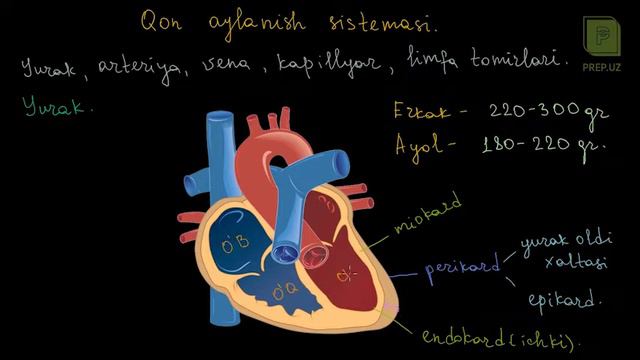 Qon aylanish sistemasi.
PREP.UZ
Yurak, arteriya, vena, kapillyar, limfa tomirlari.
Yurak.
Erkak - 220-300 gr
Ayol - 180-220 gr.
miokard
perikard
yurak oldi
xaltasi
epikard.
endokard (ichki).
O'B
O'Q